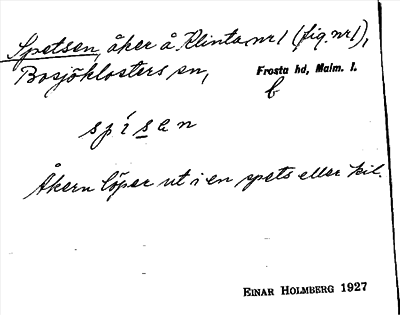 Spetsen, åker å Klinta nr 1 (fig. nr 1),
Bosjöklosters sn, Frosta hd, Malm. l.
b
spisen
Åkern löper ut i en spets eller kil.
EINAR HOLMBERG 1927